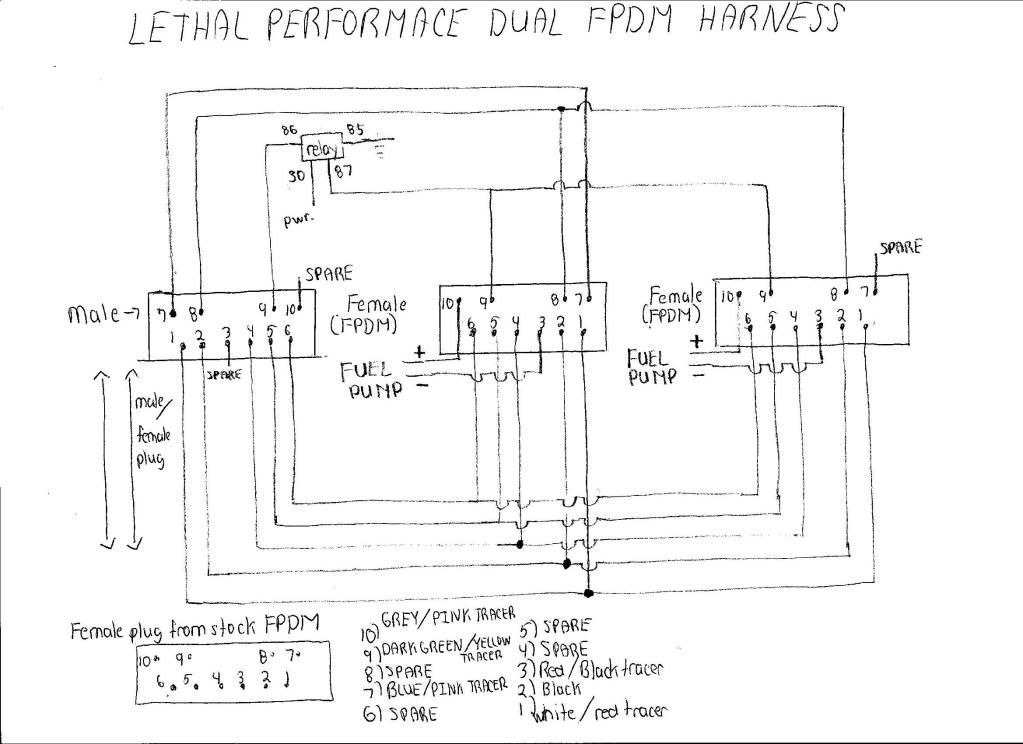 LETHAL PERFORMACE DUAL FPDM HARNESS
86 85
relay
30 87
pwr.
SPARE
SPARE
Male→
7 8 9 10
1 2 3 4 5 6
SPARE
Female
(FPDM)
10 9 8 7
6 5 4 3 2 1
+
FUEL
PUMP
-
Female
(FPDM)
10 9 8 7
6 5 4 3 2 1
+
FUEL
PUMP
-
male/
female
plug
Female plug from stock FPDM
10 9 8 7
6 5 4 3 2 1
10) GREY/PINK TRACER
9) DARK GREEN/YELLOW
TRACER
8) SPARE
7) BLUE/PINK TRACER
6) SPARE
5) SPARE
4) SPARE
3) Red/Black tracer
2) Black
1) white/red tracer